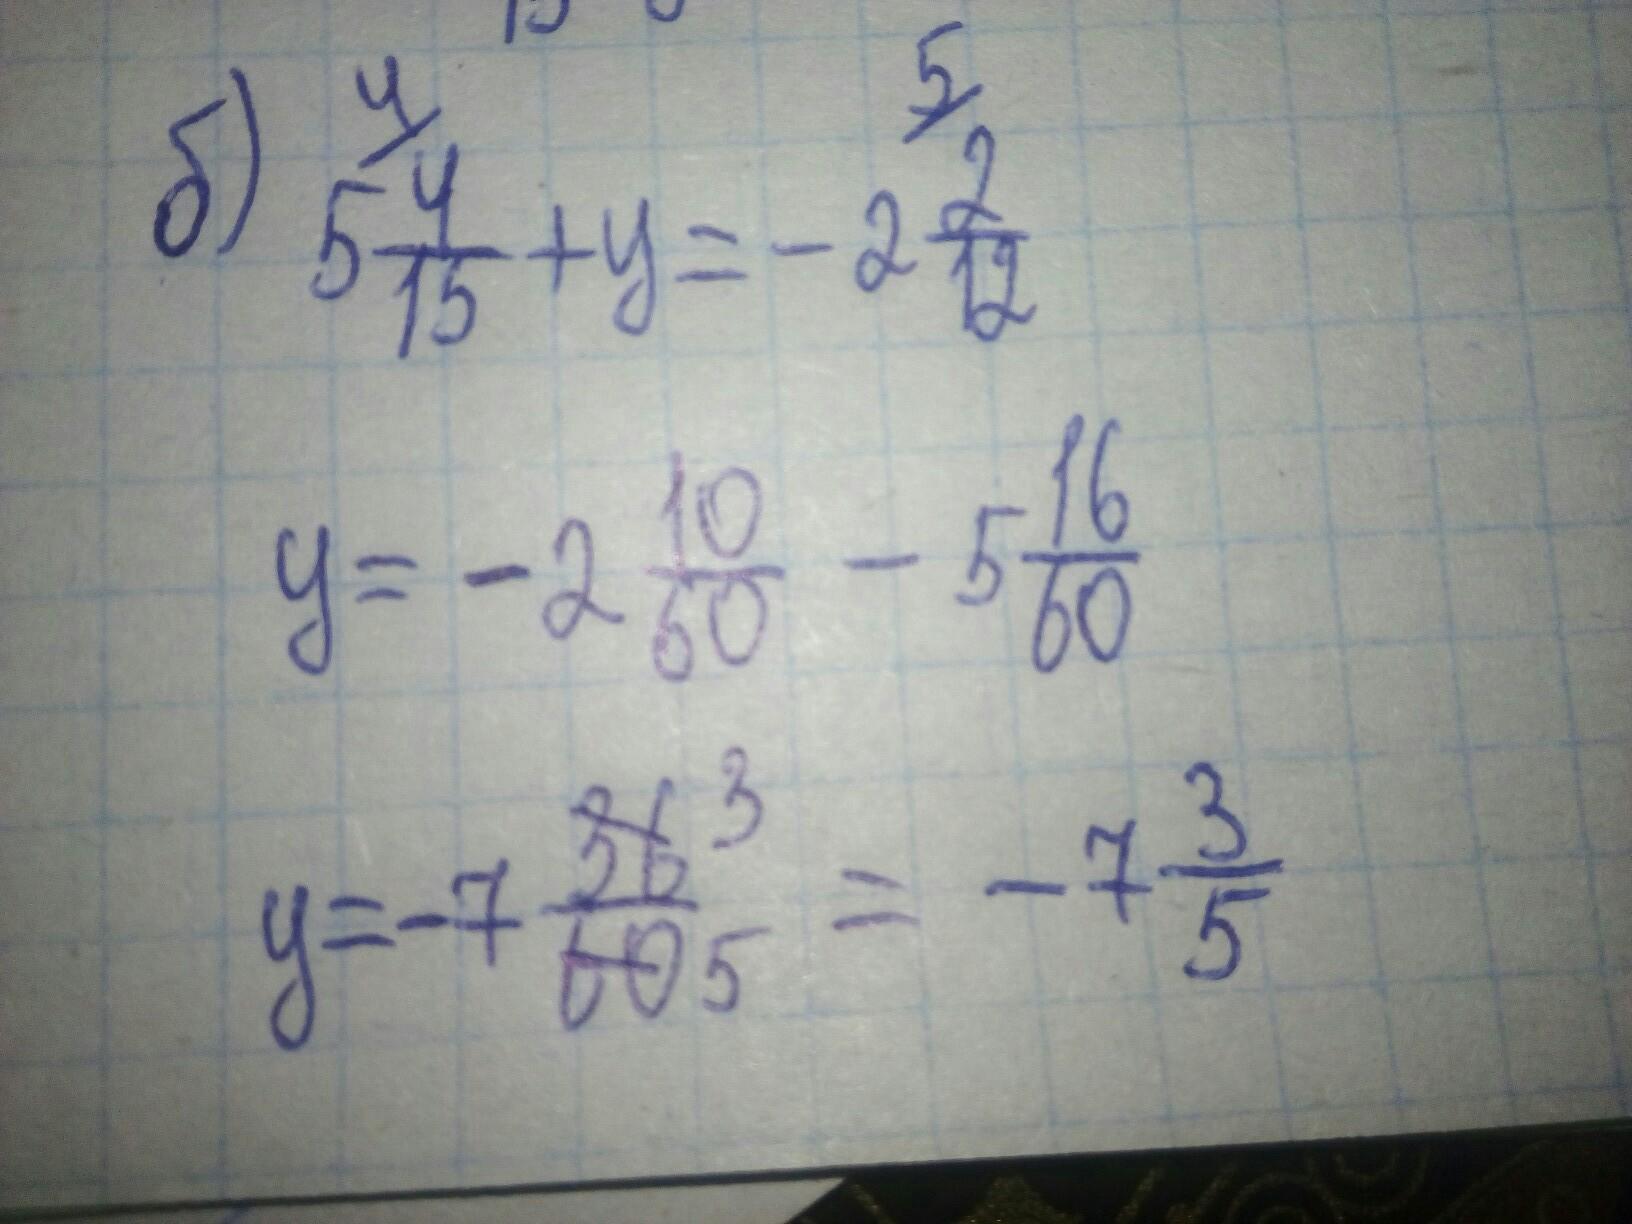 б) 5 4/15 + y = - 2 2/12
4 5
y = - 2 10/60 - 5 16/60
y = - 7 36/60 3 5 = - 7 3/5